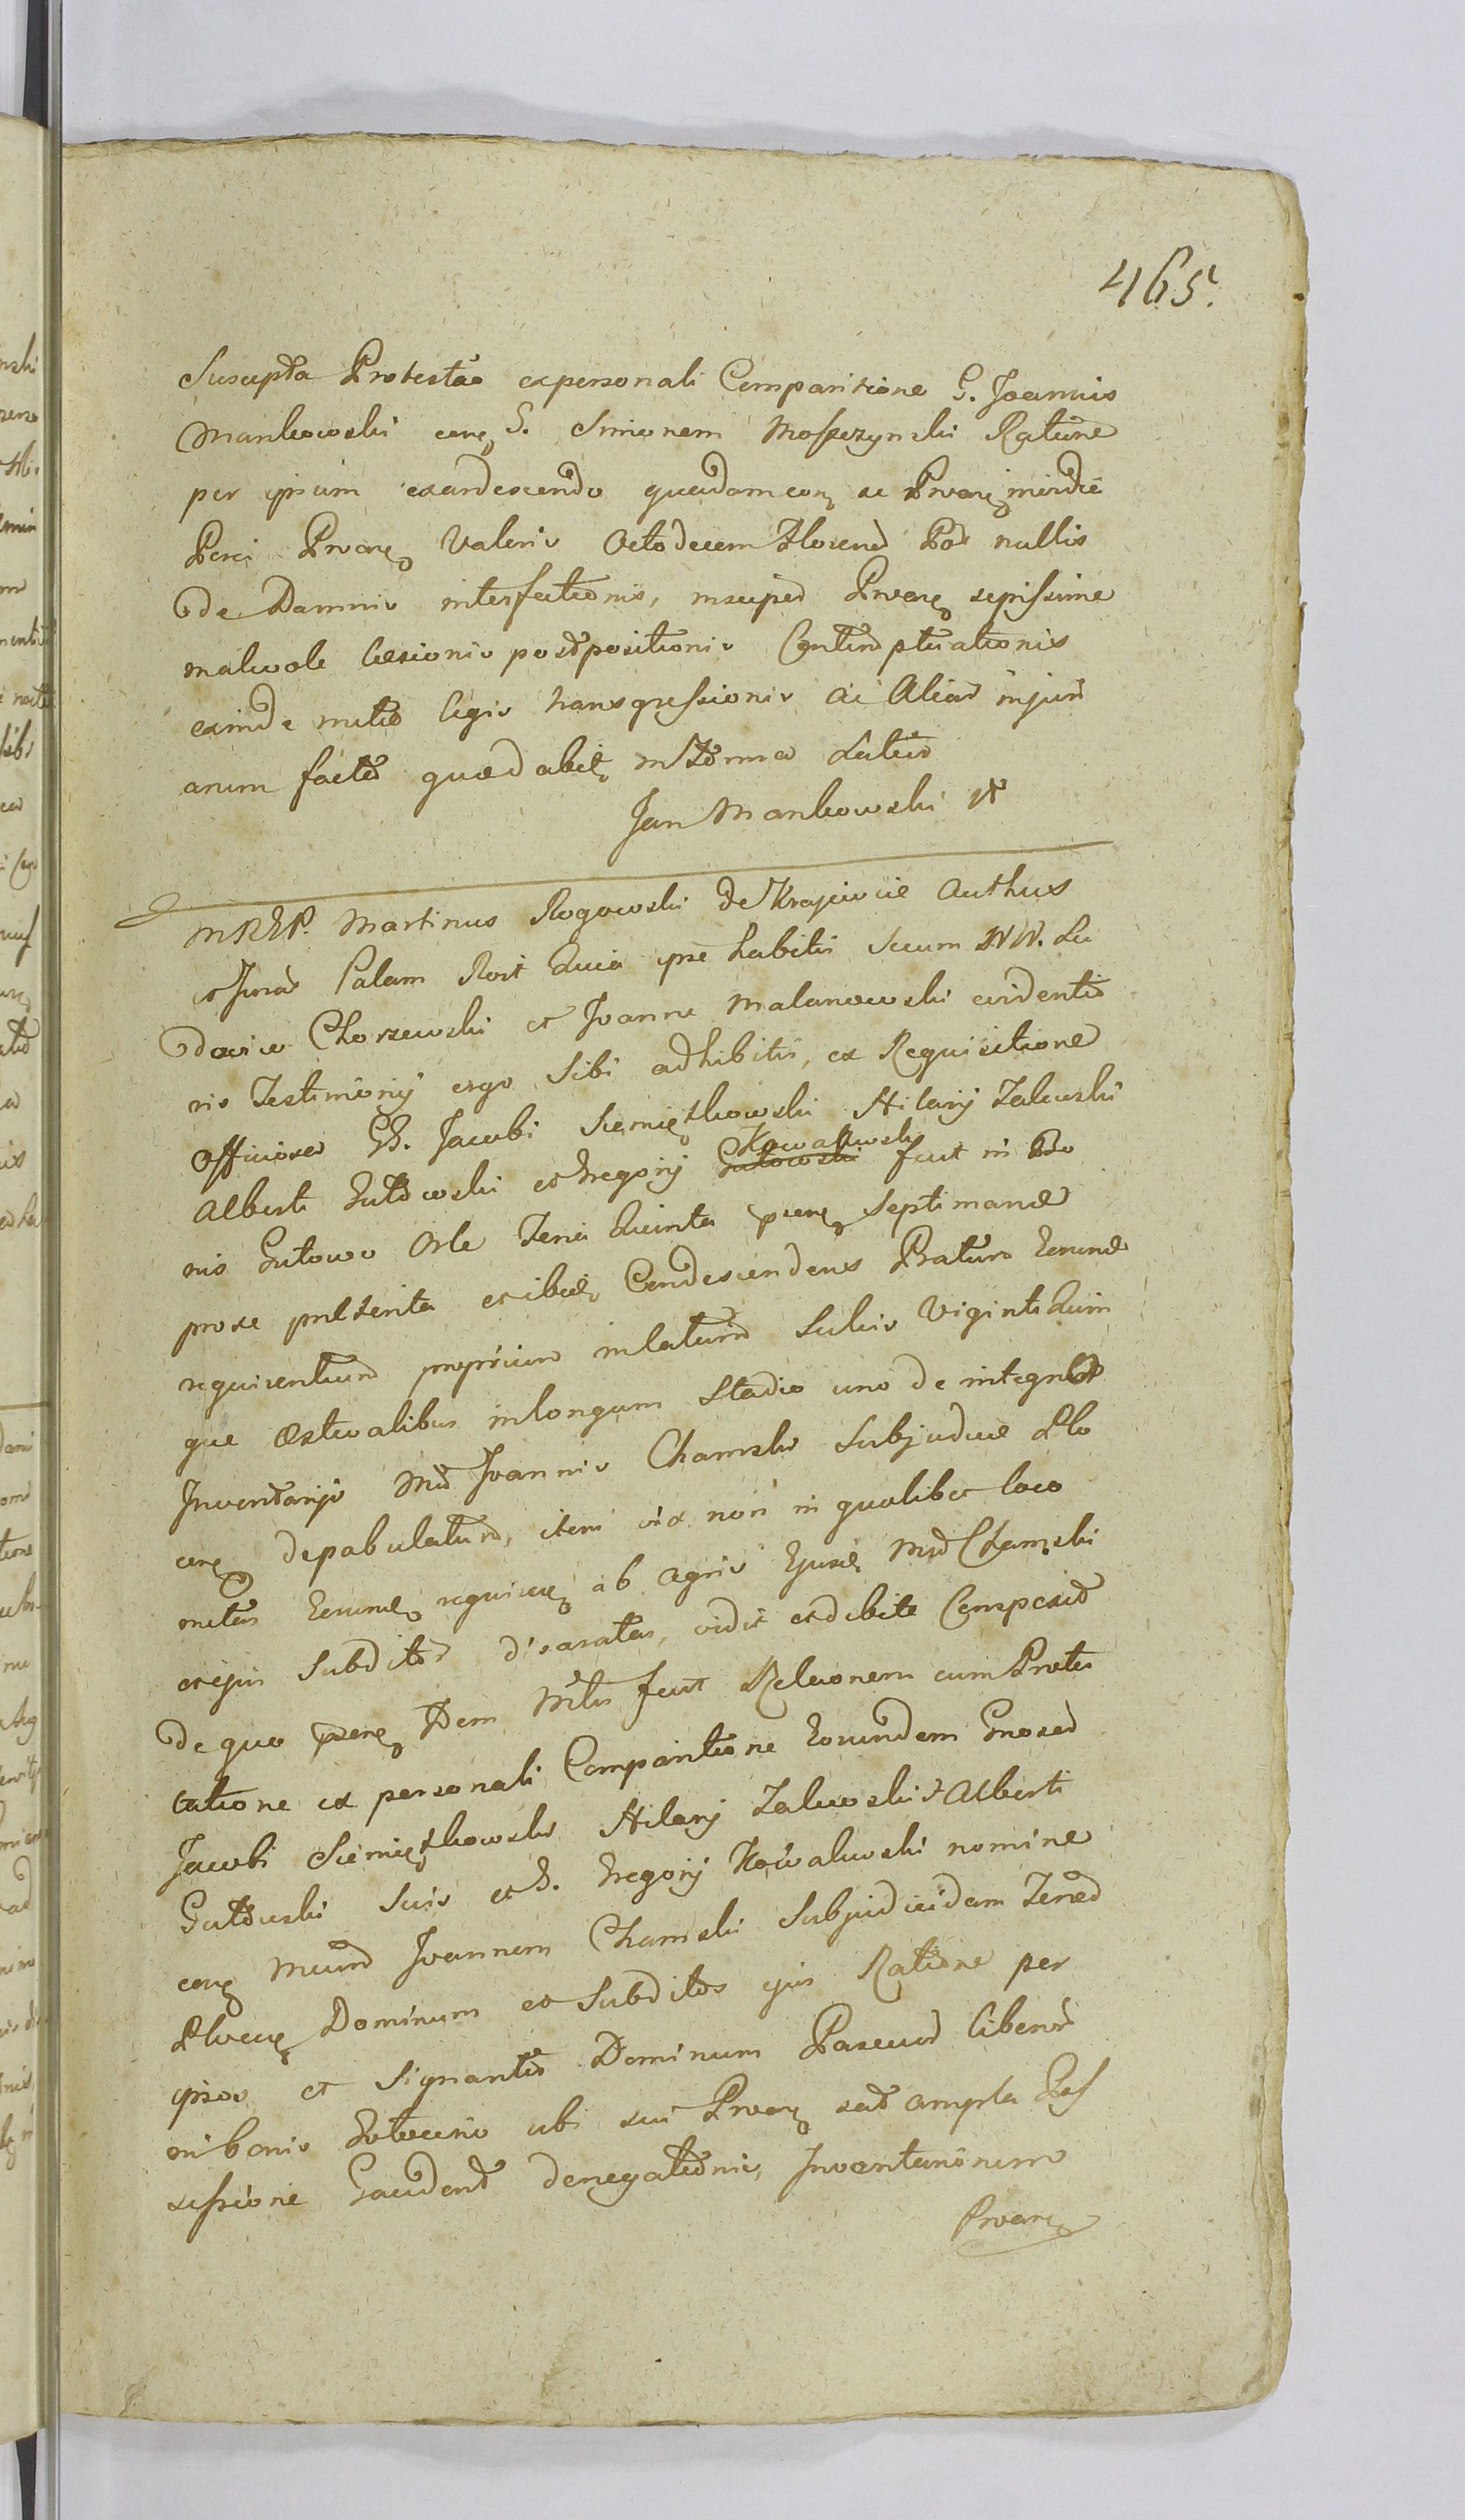 465.
Suscepta Protestao ex personali Comparitione G. Joannis
Mankowski coñ G. Simonem Moszczynski Ratione
per ipsum exardescendo quadam coñ se Prnañ invidia
Porci Prnañ Valoris Octodecem Floren Pol nullis
de Damnis interfectionis, insuper Prnañ sepissime
malevole lesionis postpositionis Contemptuationis
exinde mutuo legis transgressionis ac Aliar injuri
arum factar quaedabit, in Forma Latius
Jan Mankowski
MREP. Martinus Rogowski de Krajewice Authus
et Jurat Palam Rost Quia ipse habitis secum NN. Lu
dovico Chorzewski et Joanne Malanowski evidentio
ris Testimonij ergo sibi adhibitis, ex Requisitione
Officiosa GG. Jacobi Siemiętkowski Hilarij Zalewski
Alberti Gutowski et Gregorij Gutowski Kowalewski fuit in Bo
nis Gutowo Orle Feria Quinta septimana
proxe preterita et ibid Condescendens Pratum Eorund
requirentium proprium in latum Sulcis Viginti Quin
que Aestivalibus in longum Stadio uno de integro
Inventarijs Md Joannis Chamski Subjudicis Plo
ceñ depabulatum, item via non in quolibet loco
metas Eorund requireñ ab agris Ejusd Md Chamski
et ejus Subditor disaratas, vidit et debite Conspexit
de quo Idem Mtlis fecit Relaonem cum Protes
tatione ex personali Comparitione Eorundem Gnosor
Jacobi Siemiętkowski Hilarij Zalewski et Alberti
Gutowski suis et G. Gregorij Kowalewski nomine
coñ Mcum Joannem Chamski Subjudicidem Terred
Ploceñ Dominum et Subditos ejus Ratione per
ipsos et Signanter Dominum Pascuor liberor
in bonis Gutowino ubi sui Prnañ sat ampla Pos
sessione Gaudent denegationis, Inventariorum
Prnañ